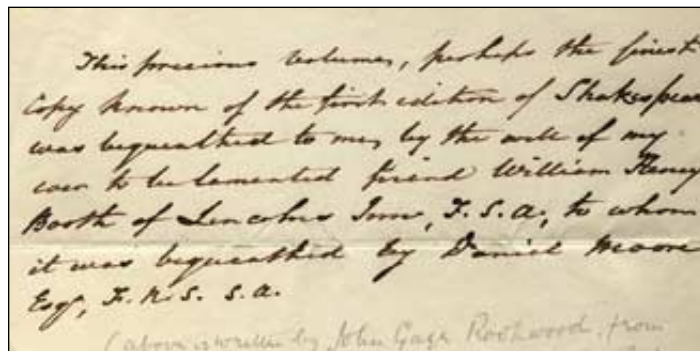 This precious volume, perhaps the finest
Copy known of the first edition of Shakespear
was bequeathed to me, by the will of my
ever to be lamented friend William Henry
Booth of Lincolns Inn, F.S.A., to whom
it was bequeathed by Daniel Moore
Esqr, F.R.S. S.A.
(above is written by John Gage Rookwood, from